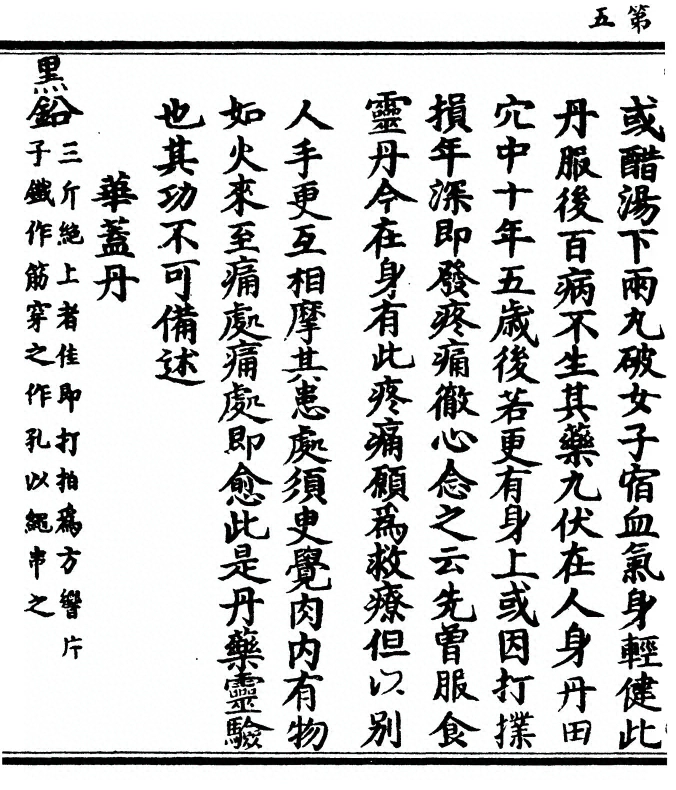 第五
或醋湯下兩丸破女子宿血氣身輕健此
丹服後百病不生其藥丸伏在人身丹田
穴中十年五歲後若更有身上或因打撲
損年深即發疼痛徹心念之云先曾服食
靈丹今在身有此疼痛願為救療但以別
人手更互相摩其患處須臾覺肉内有物
如火來至痛處痛處即愈此是丹藥靈驗
也其功不可備述
華蓋丹
黑鉛三斤絕上者佳即打拍為方響片
子鐵作筋穿之作孔以繩串之